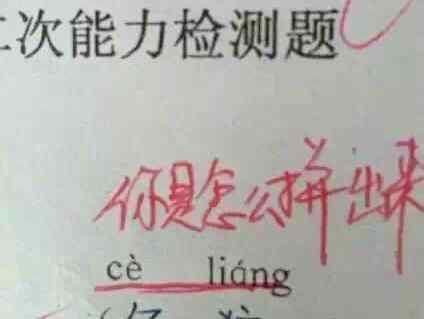 二次能力检测题
你是怎么拼出来
cè liáng